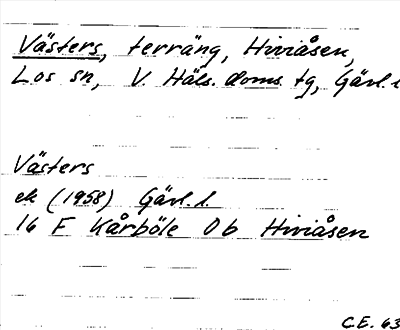 Västers, terräng, Hiviåsen,
Los sn, V. Häls. doms. tg, Gävl. l
Västers
ek (1958) Gävl. l
16 F Kårböle 0 b Hiviåsen
C.E. 63